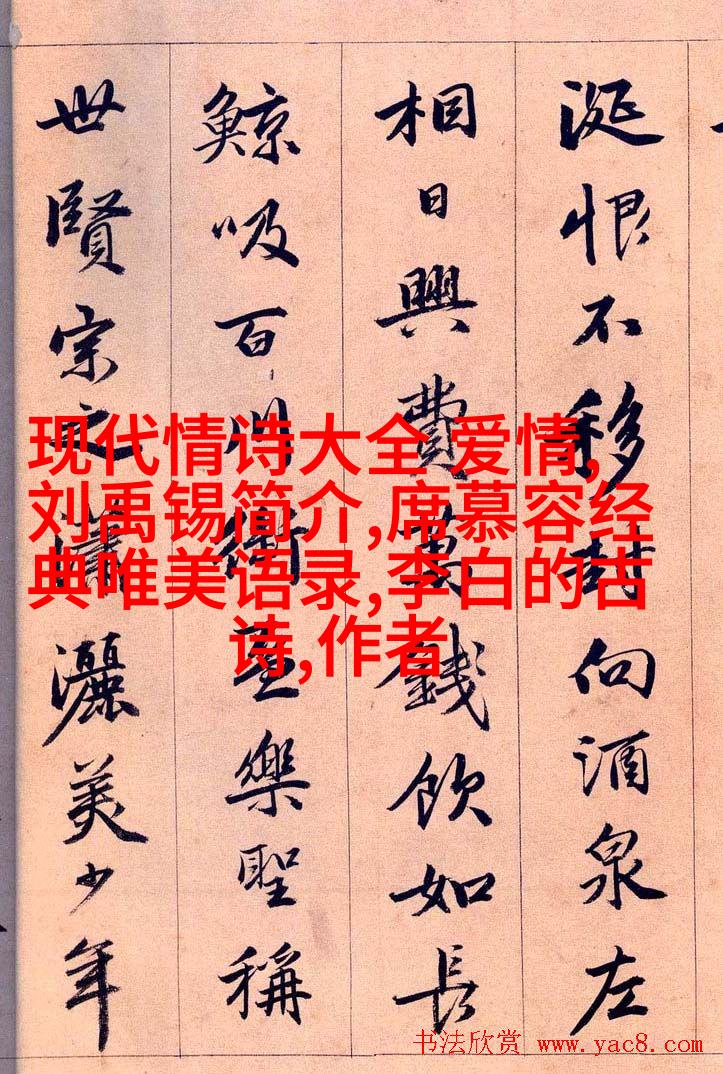 涎恨不移封向酒泉左
相日興費萬錢飲如長
鯨吸百川銜盃樂聖稱
世賢宗之瀟灑美少年
现代情诗大全 爱情,
刘禹锡简介,席慕容经
典唯美语录,李白的古
诗,作者
书法欣赏 www.yac8.com